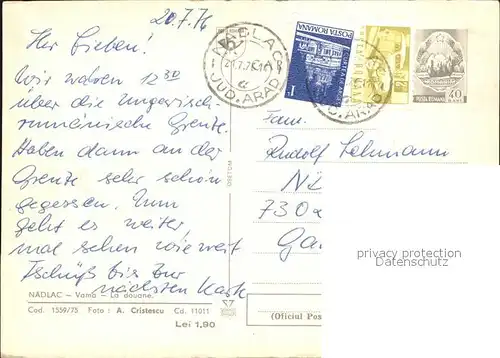 20.7.76
Ihr Lieben!
Wir waren 12 30
über die ungarisch-
rumänische Grenze.
Haben dann an der
Grenze sehr schön
gegessen. Nun
geht es weiter,
mal sehen wie weit
Tschüß bis zur
nächsten Karte
NĂDLAC — Vama — La douane.
Cod. 1559/75 Foto : A. Cristescu Cd. 11011
Lei 1,90
NĂDLAC
JUD. ARAD
POSTA ROMANA
1
POSTA ROMANA
40
BANI
Fam.
Rudolf Lehmann
730
privacy protection
Datenschutz
(Oficiul Pos